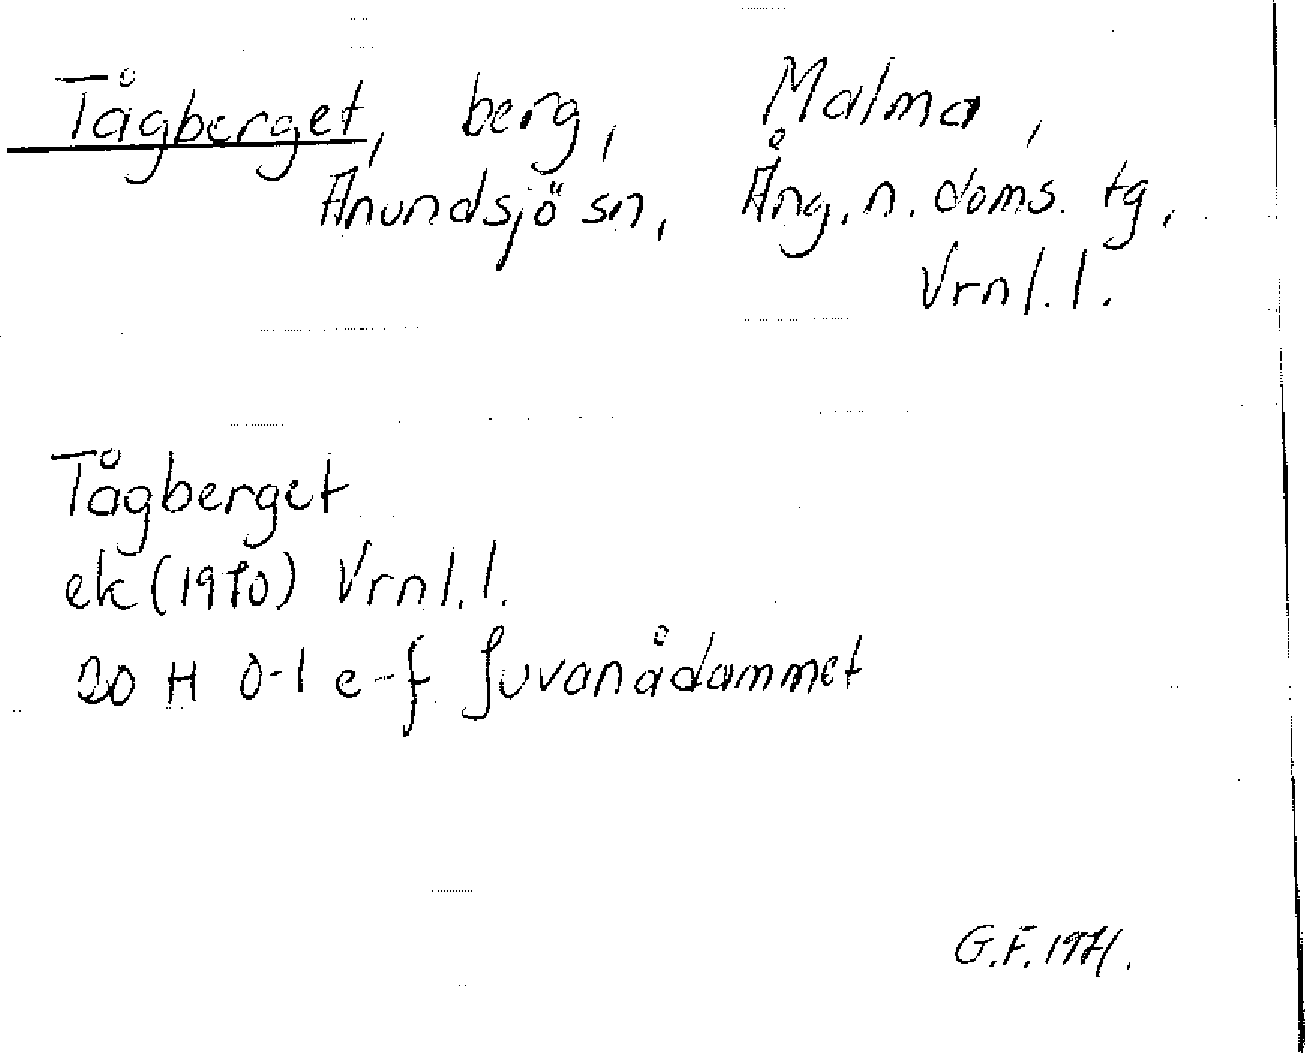 Tågberget, berg, Malma,
Anundsjö sn, Ång. n. doms. tg,
Vrnl. l.
Tågberget
ek (1970) Vrnl. l.
20 H 0-1 e-f Juvanådammet
G.F. 1971.